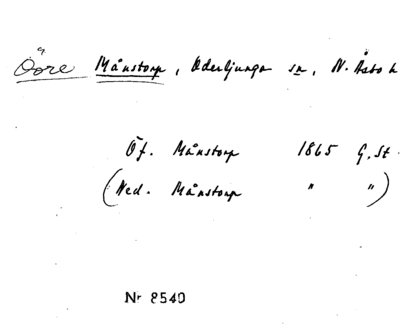 Övre Månstorp, Oderljunga sn, N. Åsbo h
Öf. Månstorp 1865 G. St.
(Ned. Månstorp " ")
Nr 8540